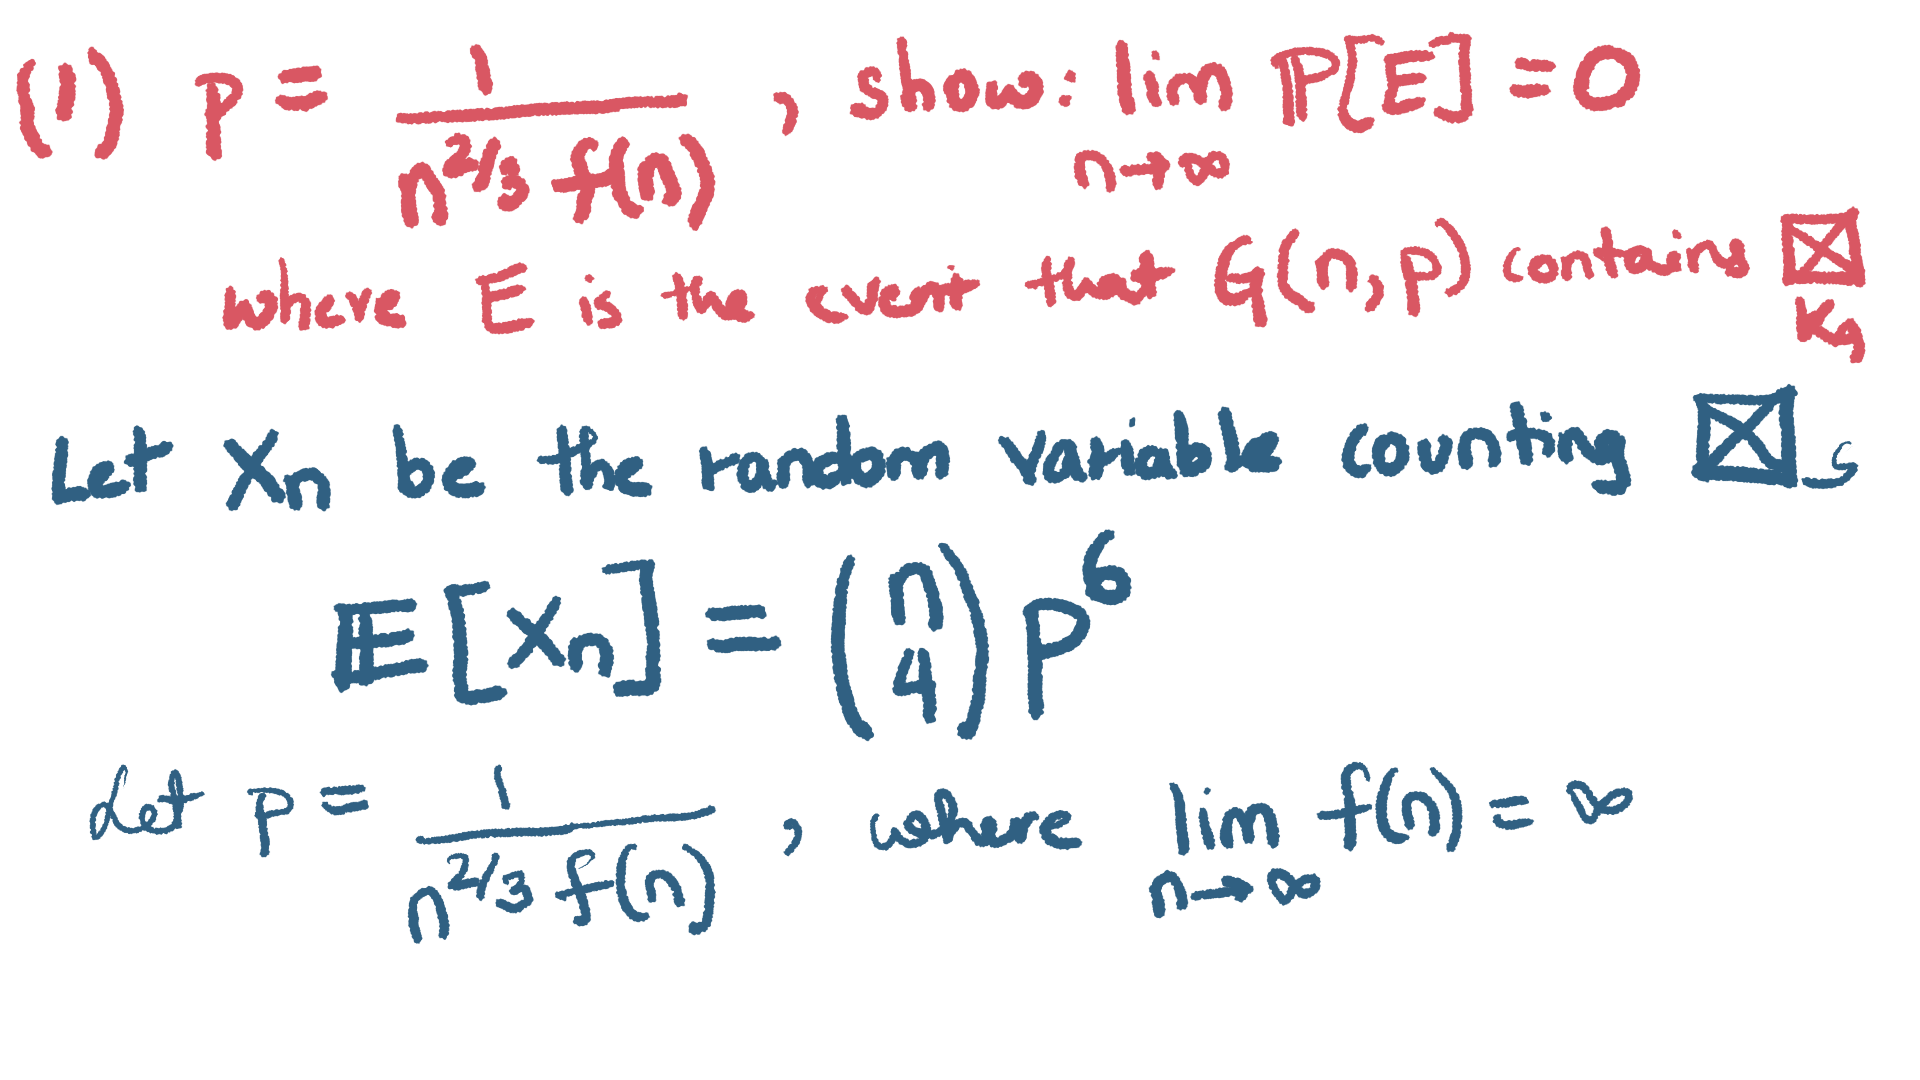 (1) p = 1 / (n^{2/3} f(n)) , show: lim_{n→∞} ℙ[E] = 0
where E is the event that G(n,p) contains K₄
Let Xₙ be the random variable counting s
𝔼[Xₙ] = (n 4) p⁶
Let p = 1 / (n^{2/3} f(n)) , where lim_{n→∞} f(n) = ∞